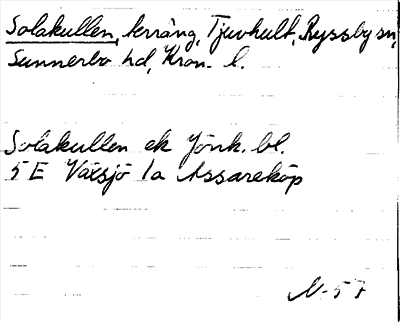 Solakullen, terräng, Tjuvhult, Ryssby sn,
Sunnerbo hd, Kron. l.
Solakullen ek Jönk. bl.
5 E Växsjö 1a Assareköp
N-57